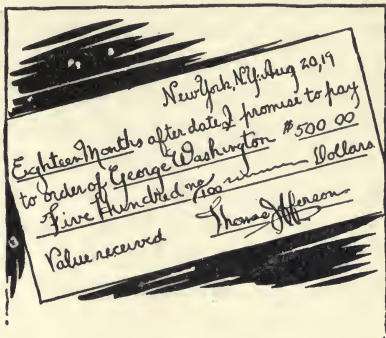 New York, N.Y. Aug 20, 19
Eighteen Months after date I promise to pay
to order of George Washington $500 00
Five Hundred no/100 Dollars
Value received Thomas Jefferson